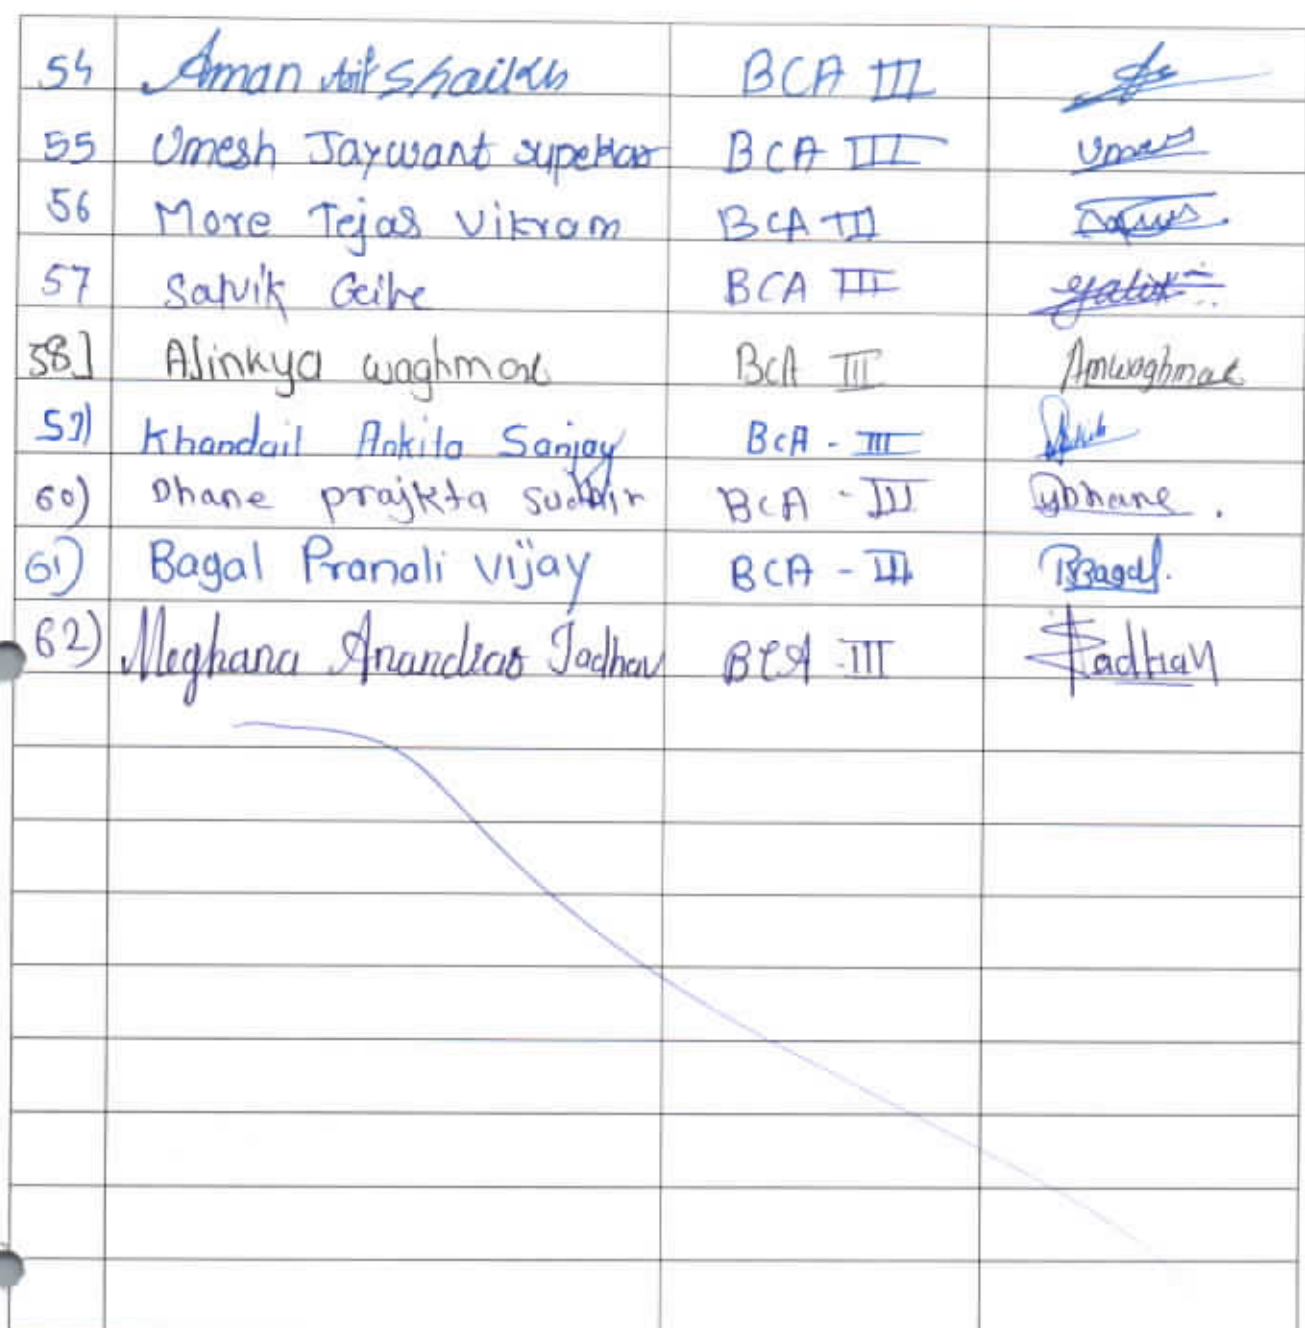 54 Aman Asif Shaikh BCA III
55 Umesh Jaywant Supekar BCA III Umesh
56 More Tejas Vikram BCA III
57 Satvik BCA III
58] Ajinkya waghmare BCA III Amwaghmare
59) Khandail Ankita Sanjay BCA - III
60) Dhane prajkta Sudhir BCA - III Dhane .
61) Bagal Pranali Vijay BCA - III PBagal.
62) Meghana Anandrao Jadhav BCA - III Jadhav